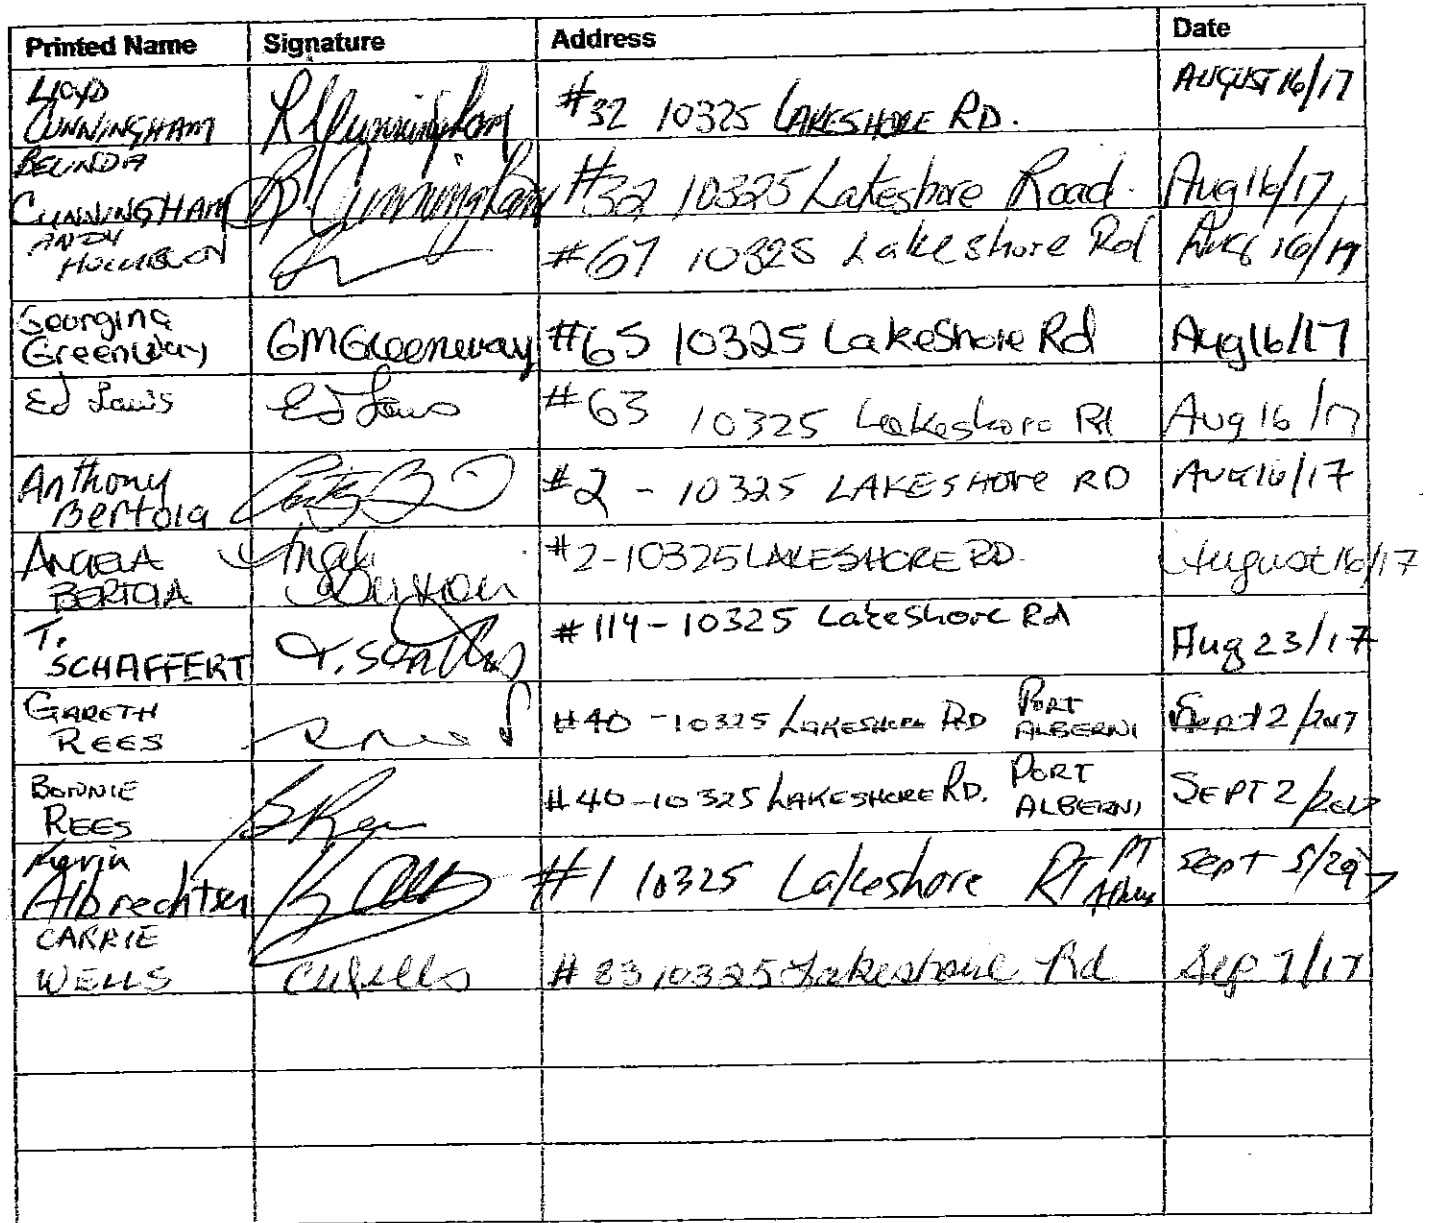 Printed Name Signature Address Date
LLOYD
CUNNINGHAM #32 10325 LAKESHORE RD. AUGUST 16/17
BELINDA
CUNNINGHAM B Cunningham #32 10325 Lakeshore Road. Aug 16/17
ANDY
#67 10325 Lakeshore Rd Aug 16/17
Georgina
Greenway GMGreenway #65 10325 Lakeshore Rd Aug 16/17
Ed #63 10325 Lakeshore Rd Aug 16/17
Anthony
Bertoia #2 - 10325 LAKESHORE RD Aug 16/17
ANGELA
BERTOIA #2-10325 LAKESHORE RD. August 16/17
T.
SCHAFFERT #114-10325 Lakeshore Rd Aug 23/17
GARETH
REES #40 -10325 LAKESHORE RD PORT ALBERNI Sept 2/2017
BONNIE
REES B Rees #40-10325 LAKESHORE RD. PORT ALBERNI SEPT 2/2017
Albrechtsen #1 10325 Lakeshore PT Sept 5/2017
CARRIE
WELLS CWells #83 10325 Lakeshore Rd Sep 7/17